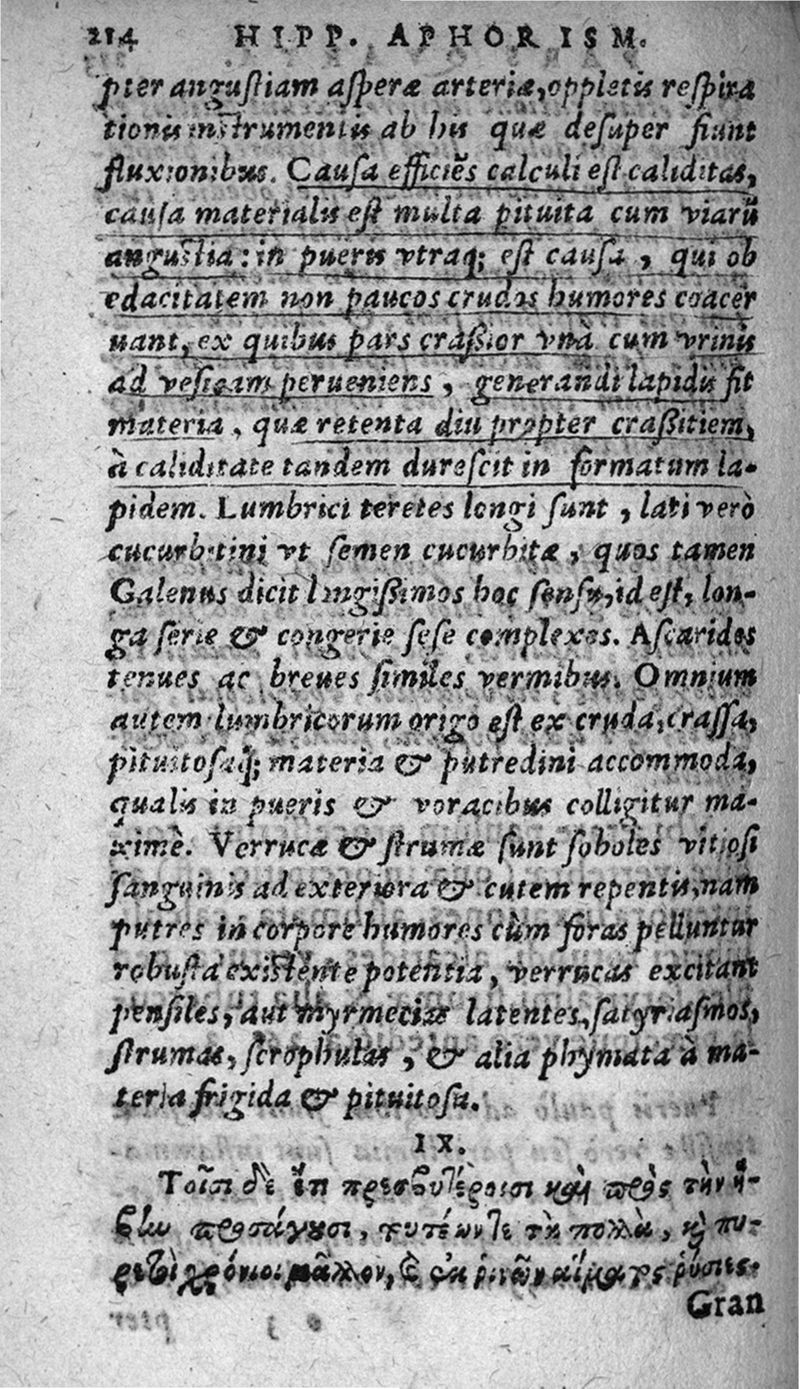 214 HIPP. APHORISM.
pter anguſtiam aſperæ arteriæ, oppletis reſpira
tionis inſtrumentis ab his quæ deſuper fiunt
fluxionibus. Cauſa efficiẽs calculi eſt caliditas,
cauſa materialis eſt multa pituita cum viarũ
anguſtia: in pueris vtraq; eſt cauſa, qui ob
edacitatem non paucos crudos humores coacer
uant, ex quibus pars craſſior vnà cum vrinis
ad veſicam perueniens, generandi lapidis fit
materia, quæ retenta diu propter craſſitiem,
à caliditate tandem dureſcit in formatum la-
pidem. Lumbrici teretes longi ſunt, lati verò
cucurbitini vt ſemen cucurbitæ, quos tamen
Galenus dicit longiſſimos hoc ſenſu, id eſt, lon-
ga ſerie & congerie ſeſe complexos. Aſcarides
tenues ac breues ſimiles vermibus. Omnium
autem lumbricorum origo eſt ex cruda, craſſa,
pituitoſaq; materia & putredini accommoda,
qualis in pueris & voracibus colligitur ma-
ximè. Verrucæ & ſtrumæ ſunt ſoboles vitioſi
ſanguinis ad exteriora & cutem repentis, nam
putres in corpore humores cùm foras pelluntur
robuſta exiſtente potentia, verrucas excitant
penſiles, aut myrmecias latentes, ſatyriaſmos,
ſtrumas, ſcrophulas, & alia phymata à ma-
teria frigida & pituitoſa.
IX.
Τοῖσι δὲ ἔτι πρεσβυτέροισι καὶ πρὸς τὴν ἥ-
βην προσάγουσι, τουτέων τε τὰ πολλὰ, καὶ πυ-
ρετοὶ χρόνιοι μᾶλλον, καὶ ἐκ ῥινῶν αἵματος ῥύσιες.
Gran